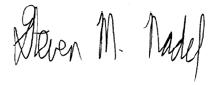 Steven M. Nadel